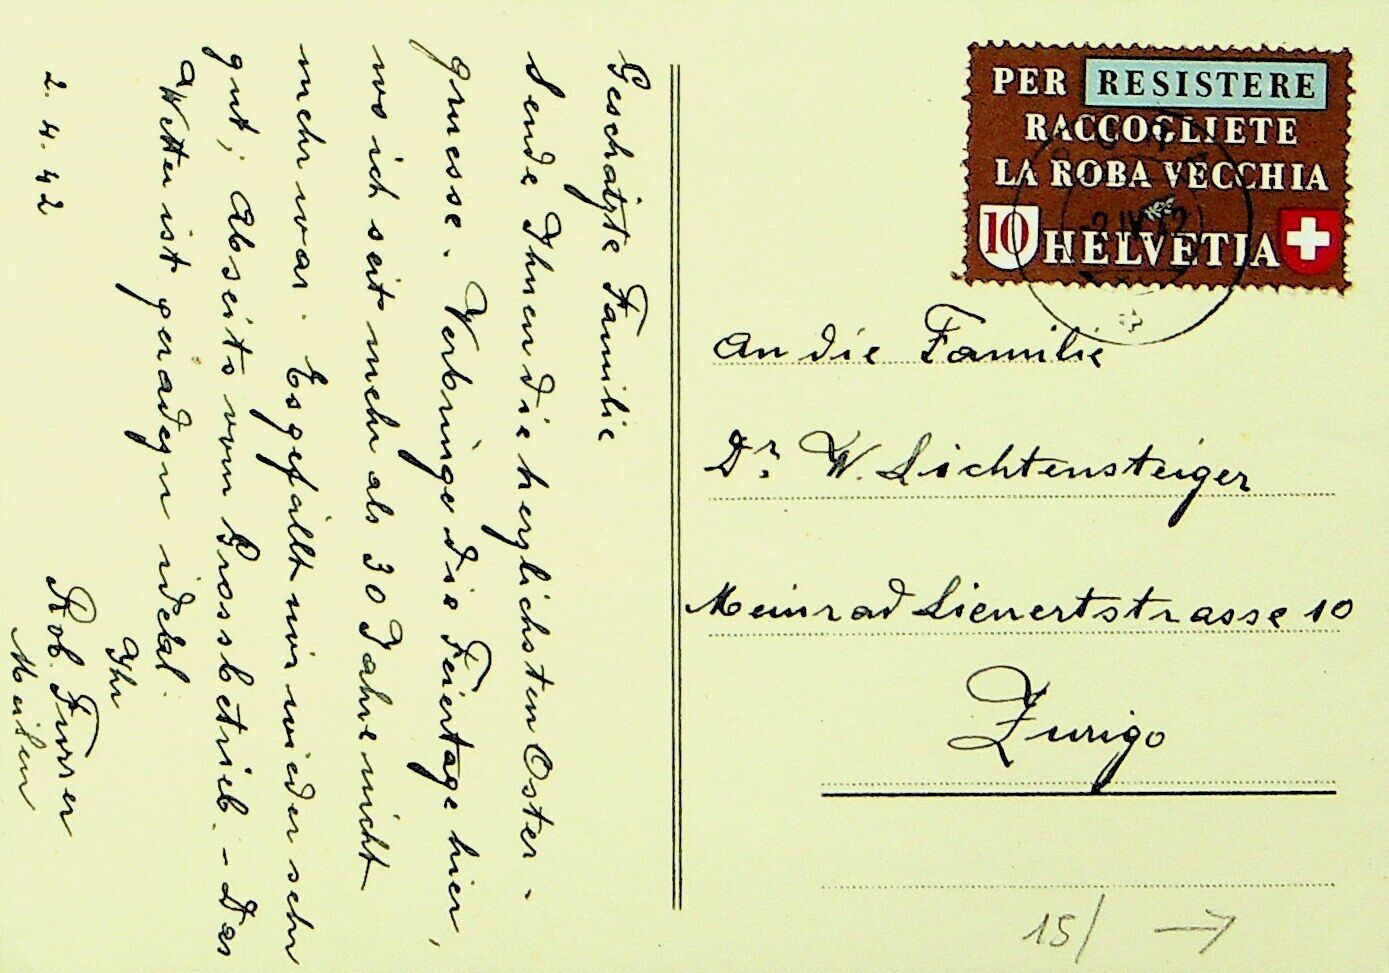 Geschätzte Familie
Sende Ihnen die herzlichsten Oster-
gruesse. Verbringe die Feiertage hier,
wo ich seit mehr als 30 Jahre nicht
mehr war. Es gefällt mir wieder sehr
gut, Abseits vom Grossbetrieb. - Das
Wetter ist geradezu ideal.
2. 4. 42
Ihr
Rob. Furrer
Meilen
PER RESISTERE
RACCOGLIETE
LA ROBA VECCHIA
10 HELVETIA
An die Familie
Dr. W. Lichtensteiger
Meinrad Lienertstrasse 10
Zurigo
15/ →